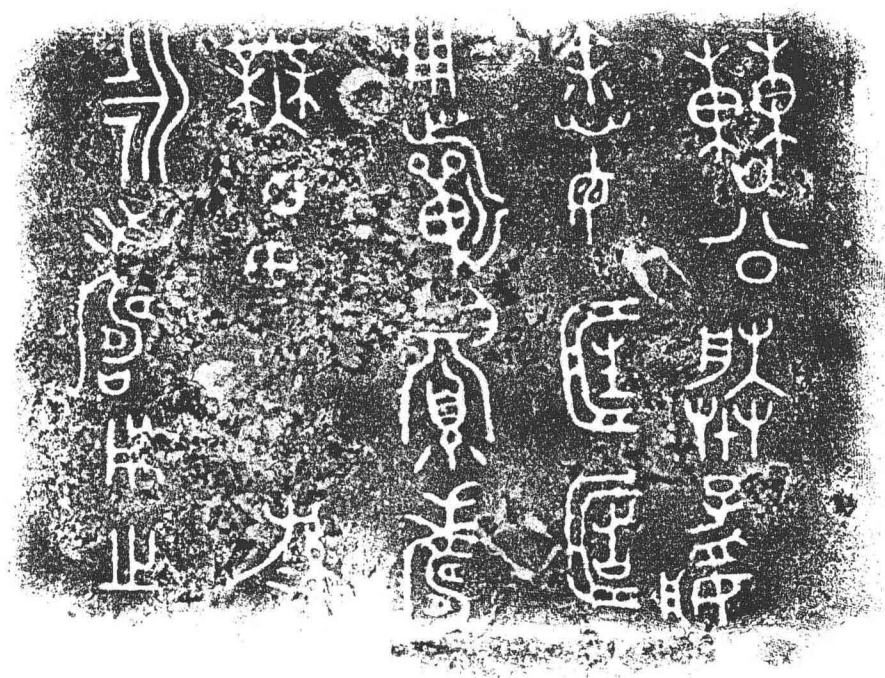 曹公媵孟姬
悆母匡簠
用祈眉壽
無疆子孫
永壽用之